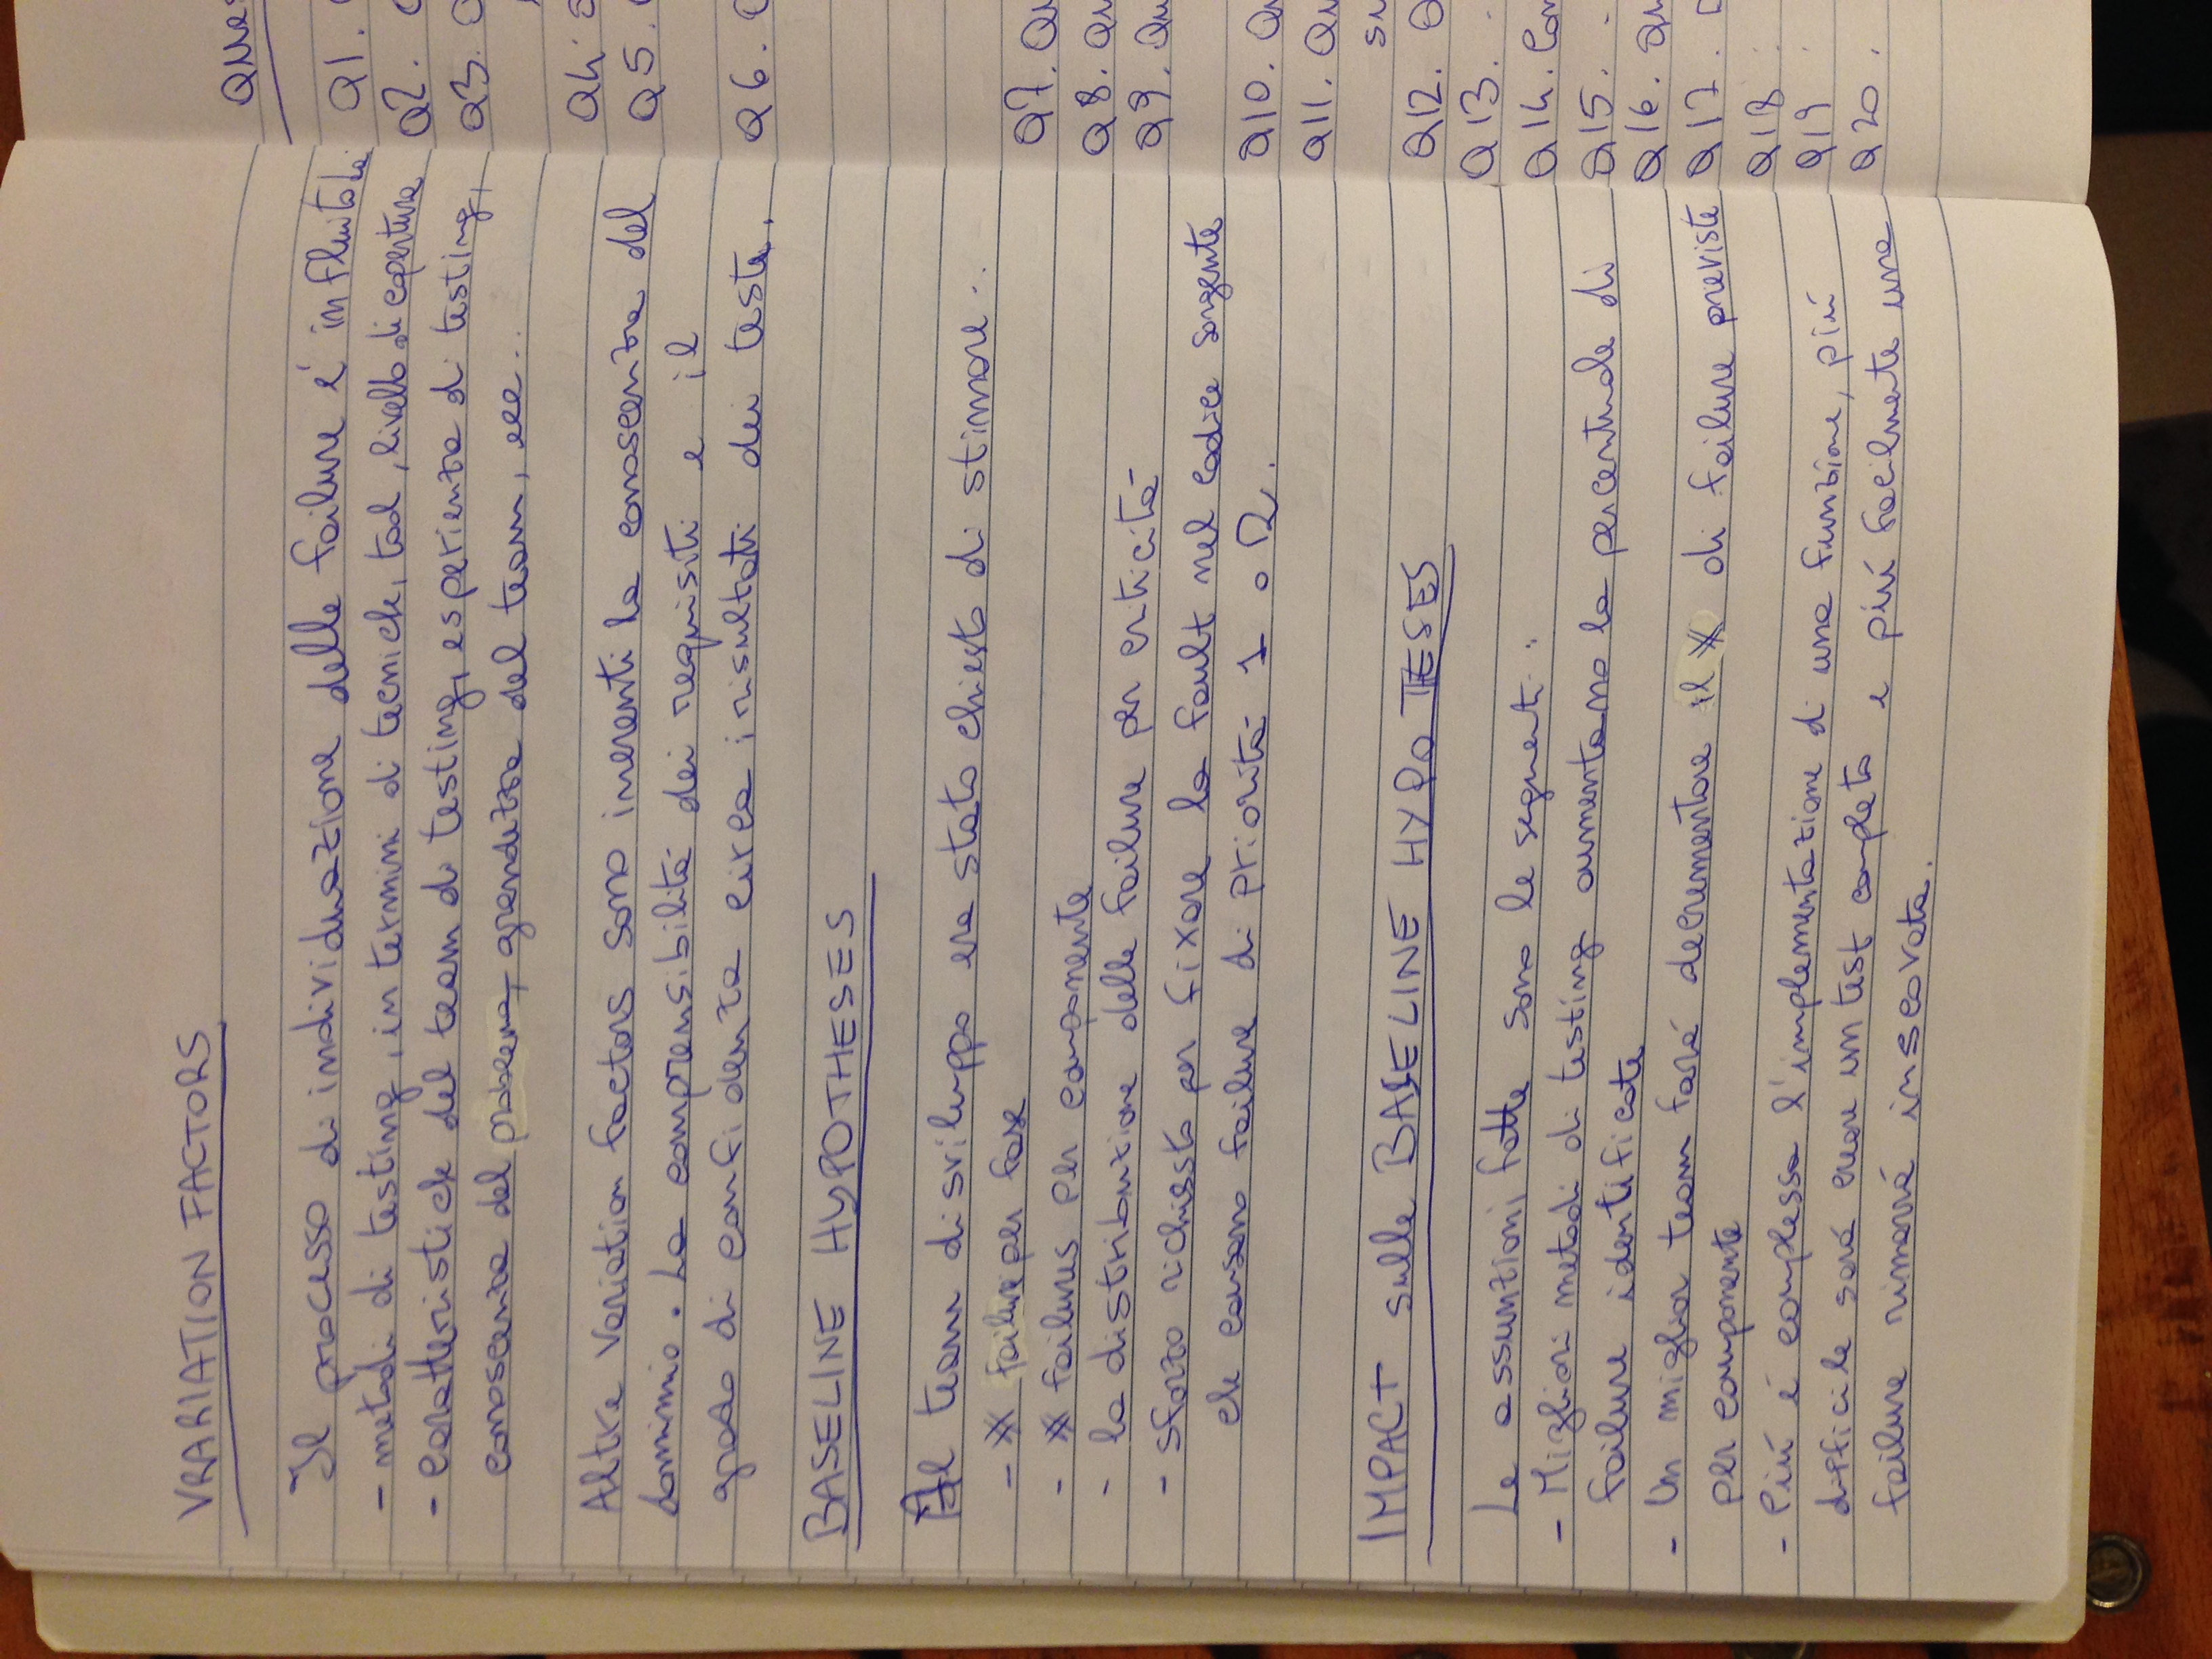 VRARIATION FACTORS
Il processo di individuazione delle failure é influito da
- metodi di testing, in termini di tecniche, tool, livello di copertura
- caratteristiche del team di testing, esperienza di testing,
conoscenza del problema, grandezza del team, ecc..
Altre variation factors sono inerenti la conoscenza del
dominio. La comprensibilitá dei requisiti e il
grado di confidenza circa i risultati dei test.
BASELINE HYPOTHESES
Al team di sviluppo era stato chiesto di stimare:
- # failure per fase
- # failures per componente
- la distribuzione delle failure per criticitá
- sforzo richiesto per fixare la fault nel codice sorgente
che causano failure di prioritá 1 o 2.
IMPACT sulle BASELINE HYPOTESES
Le assunzioni fatte sono le seguenti:
- Migliori metodi di testing aumentano la percentuale di
failure identificate
- Un miglior team fará decrementare il # di failure previste
per componente
- Piú é complessa l'implementazione di una funzione, piú
difficile sará creare un test completo e piú facilmente una
failure rimarrá inscovata.
Ques
Q1.
Q2.
Q3.
Q4.
Q5.
Q6.
Q7. Qu
Q8. Qu
Q9. Qu
Q10. Qu
Q11. Qu
su
Q12. Q
Q13.
Q14. Com
Q15.
Q16. Qu
Q17.
Q18
Q19
Q20.